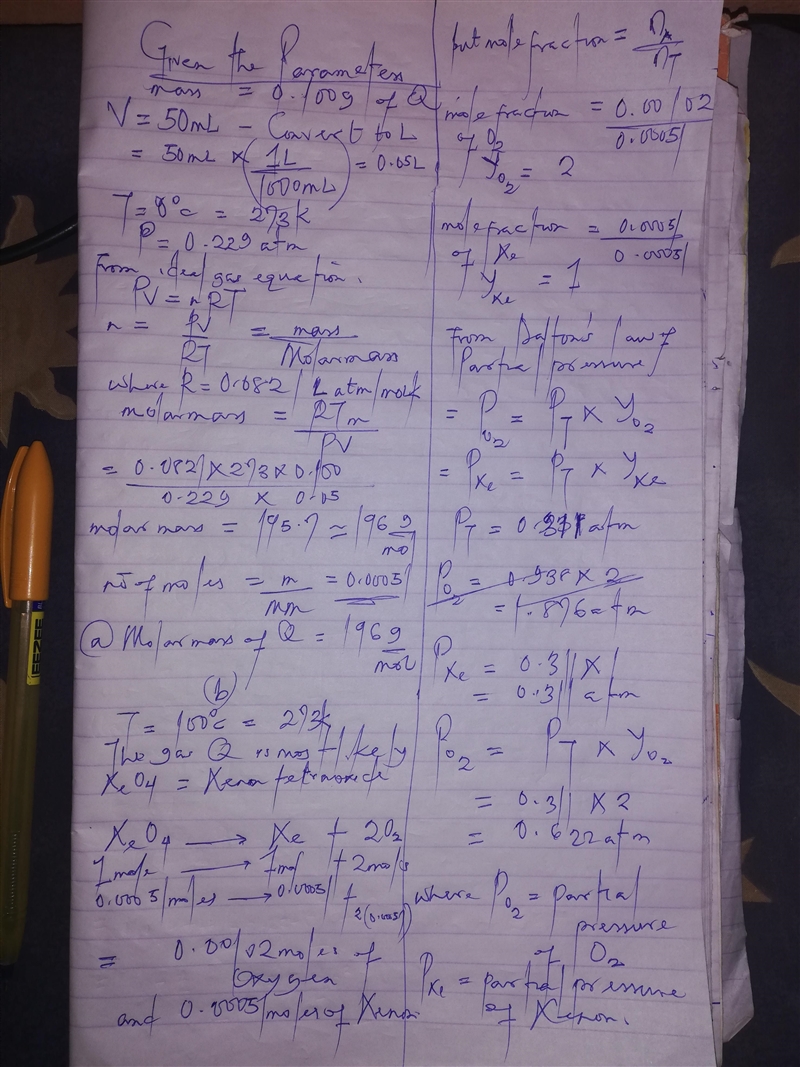 Given the Parameters
mass = 0.100g of Q
V = 50mL - Convert to L
= 50mL × (1L / 1000mL) = 0.05L
T = 0°c = 273k
P = 0.229 atm
From ideal gas equation.
PV = nRT
n = PV / RT = mass / Molar mass
where R = 0.0821 L atm/molk
molar mass = RTm / PV
= 0.0821 × 273 × 0.100 / 0.229 × 0.05
molar mass = 195.7 ≃ 196 g/mol
no of moles = m / mm = 0.00051
(a) Molar mass of Q = 196 g/mol
(b)
T = 100°c = 273k
The gas Q is most likely
XeO4 = Xenon tetraoxide
XeO4 → Xe + 2O2
1mole → 1mol + 2mols
0.00051moles → 0.00051 + 2(0.00051)
= 0.00102 moles of
Oxygen
and 0.00051moles of Xenon
but mole fraction = nA / nT
mole fraction of O2 = 0.00102 / 0.00051
yO2 = 2
mole fraction of Xe = 0.00051 / 0.00051
yXe = 1
From Dalton's law of
Partial pressure
= PO2 = PT × yO2
= PXe = PT × yXe
PT = 0.311 atm
PO2 = 0.938 × 2
= 1.876 atm
PXe = 0.311 × 1
= 0.311 atm
PO2 = PT × yO2
= 0.311 × 2
= 0.622 atm
where PO2 = partial
pressure
of O2
PXe = partial pressure
of Xenon.
EEZEE